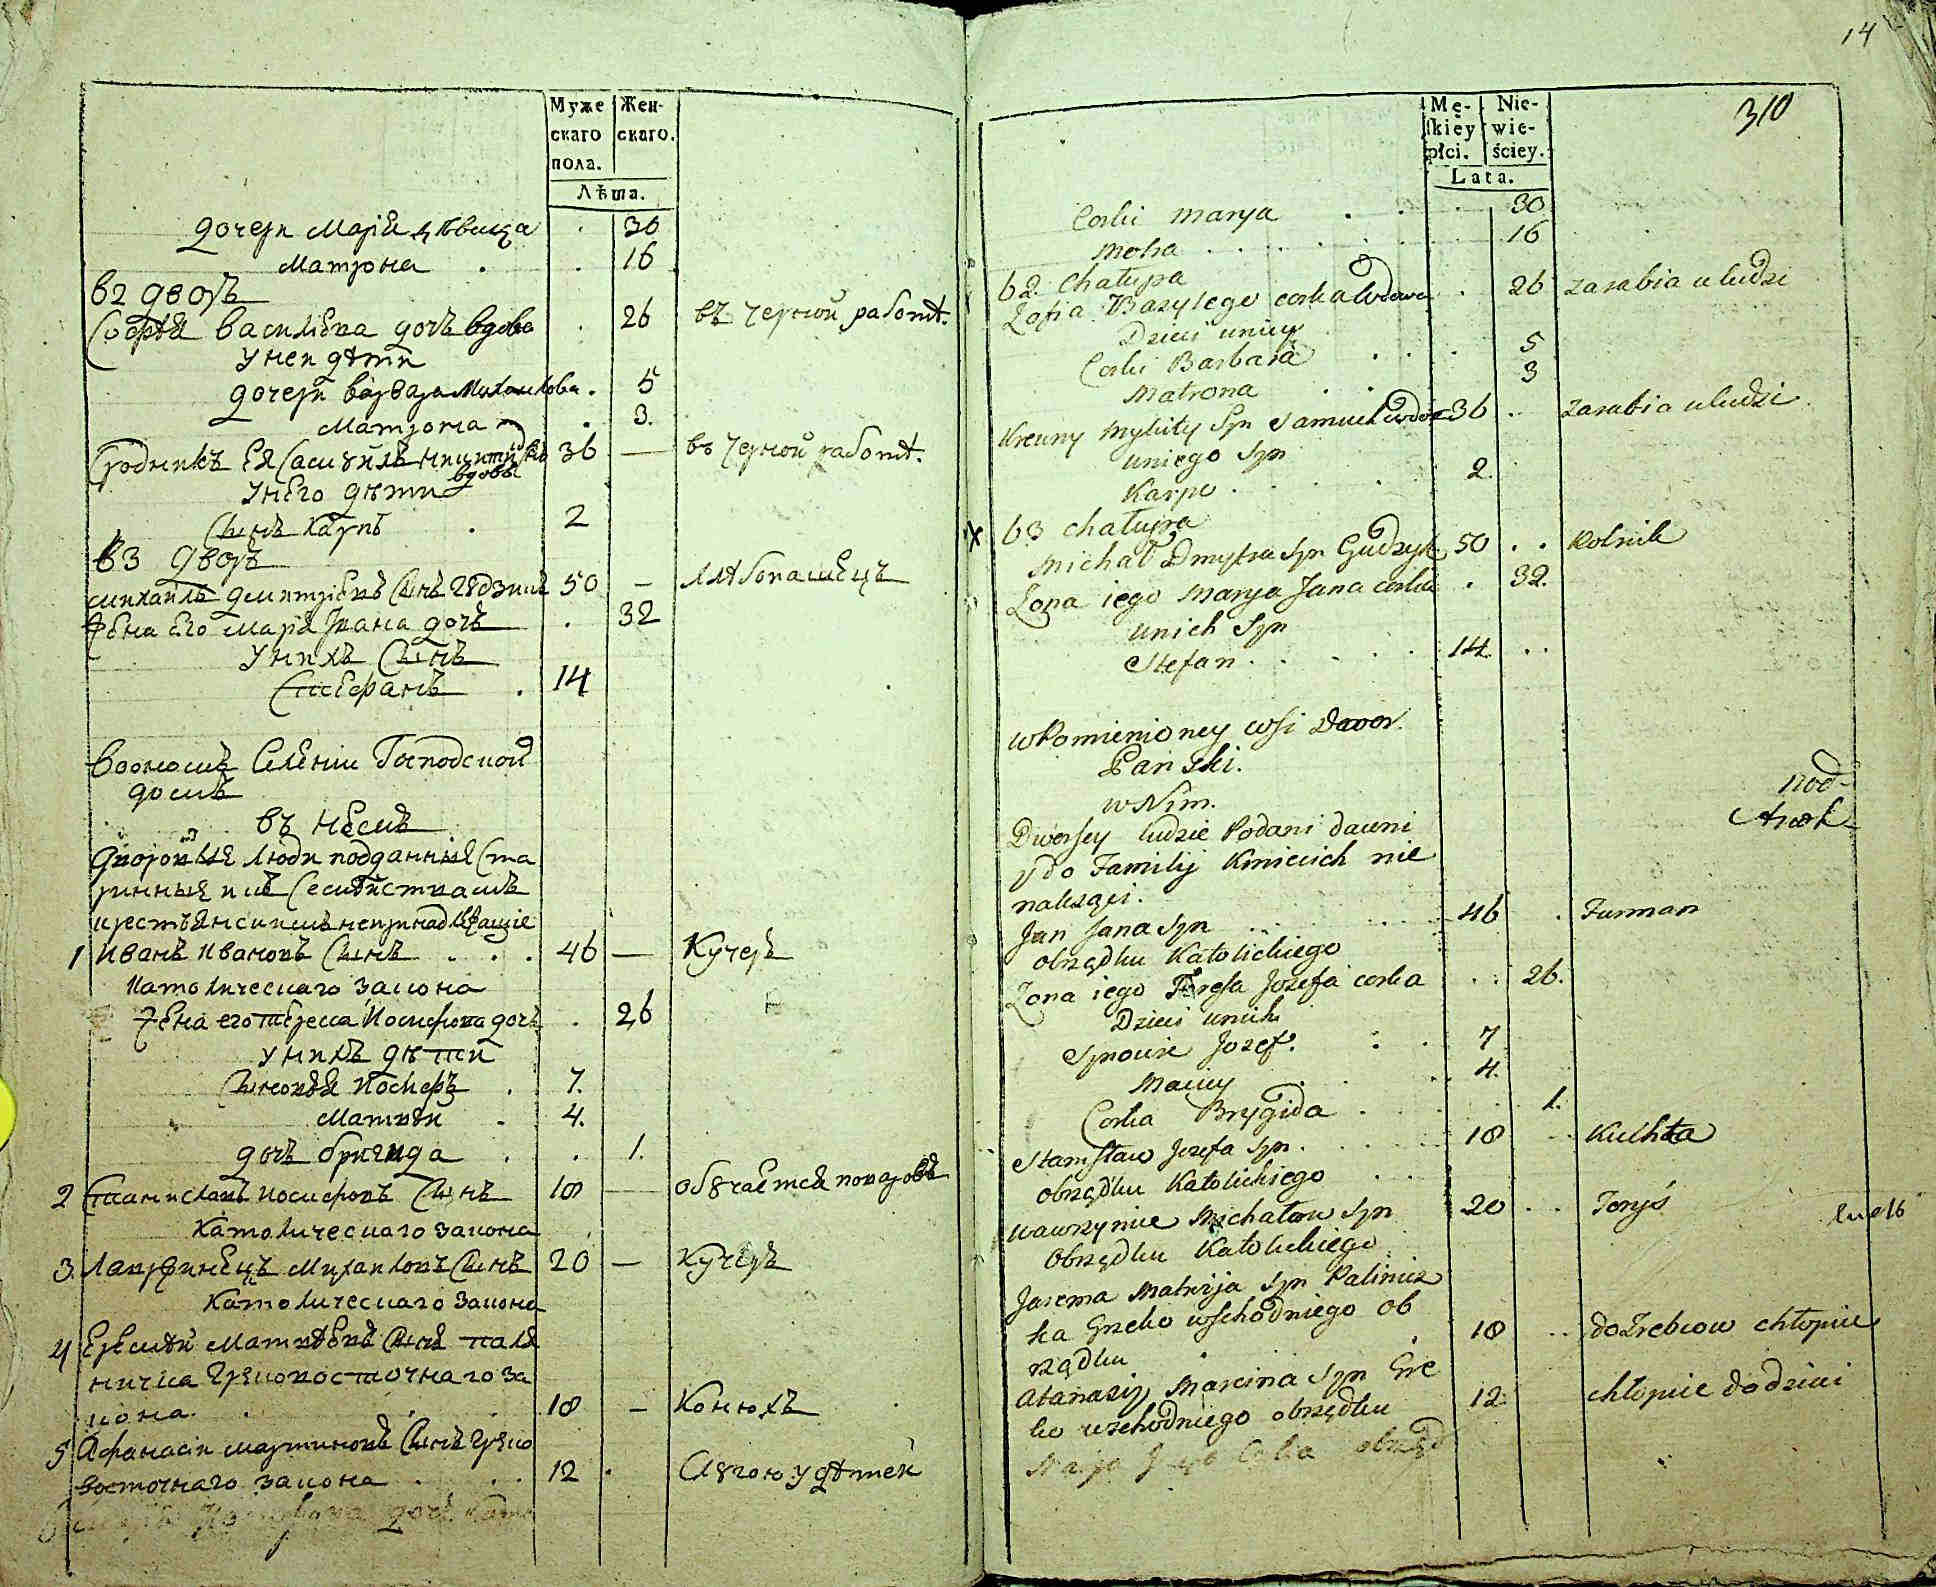 Муже
скаго
пола.
Жен-
скаго.
Лѣта.
дочери Марія дѣвица . 30
Матрона . . 16
62 дворъ
Софья Василева дочь вдова . 26 въ черной работѣ.
у неи дѣти
дочери варвара Михаилова . 5
Матрона . 3.
36 — въ черной работѣ.
вдовъ
у него дѣти
сынъ Карпъ . 2
63 дворъ
Михаилъ Дмитріевъ сынъ Гудзикъ 50 — хлѣбопашецъ
жена его Маріа Ивана дочь . 32
у нихъ сынъ
Стефанъ . 14
воономъ селеніи Господской
домъ
въ немъ
дворовыя люди подданныя ста
ринныя и къ семѣйствамъ
крестьянскимъ непринадлежащіе
1 Иванъ Ивановъ сынъ . . . 46 — Кучеръ
католическаго закона
жена его тереса Иосифова дочь . 26
у нихъ дѣти
сыновья Иосифъ . 7.
Матвѣй . 4.
дочь бригида . . 1.
2 Станиславъ Иосифовъ сынъ 18 — обучается поваровъ
католическаго закона
3. Михаиловъ сынъ 20 — кучеръ
католическаго закона
4 Еремѣй Матвѣевъ сынъ пали
ничка Грековосточнаго за
кона. 18 — Конюхъ
5 Афанасіи мартиновъ сынъ Греко
восточнаго закона . . . 12 . слугою у дѣтей
дочь
14
310
Mę-
skiey
płci.
Nie-
wie-
ściey.
Lata.
Corki Marya . . . 30
Motra . . . . . . 16
62. Chałupa
Zofia Bazylego corka wdowa . 26 zarabia u ludzi
Dzieci u niey
Corki Barbara . . . 5
Matrona . . 3
Krewny Mykity Syn Samuel wdowiec 36 .. zarabia u ludzi
u niego Syn
Karpo . . . . 2.
x 63 chałupa
Michał Dmytra Syn Gudzyk 50 . . Rolnik
Zona iego Marya Jana corka . 32.
u nich Syn
Stefan . . . . . 14. . .
w Pomienioney wsi Dwor
Pański.
w Nim.
Dworscy ludzie Podani dawni
y do Familij Kmiecich nie
należący.
Jan Jana Syn . . . 46 . Furman
obrządku Katolickiego
Zona iego Teresa Jozefa corka . . 26.
Dzieci u nich
Synowie Jozef. : . 7
Maciey . . . . 4.
Corka Brygida . . . . 1.
Stanisław Jozefa Syn . . . . 18 .. Kuchta
obrządku Katolickiego . .
Wawrzyniec Michałow Syn 20 . . Foryś
Obrządku Katolickiego
Jarema Matwija Syn Palinicz
ka Greko wschodniego ob
rządku 18 .. do Zrebcow chłopiec
Atanazij Marcina Syn Gre
ko wschodniego obrządku 12. chłopiec do dzieci
Corka obrząd